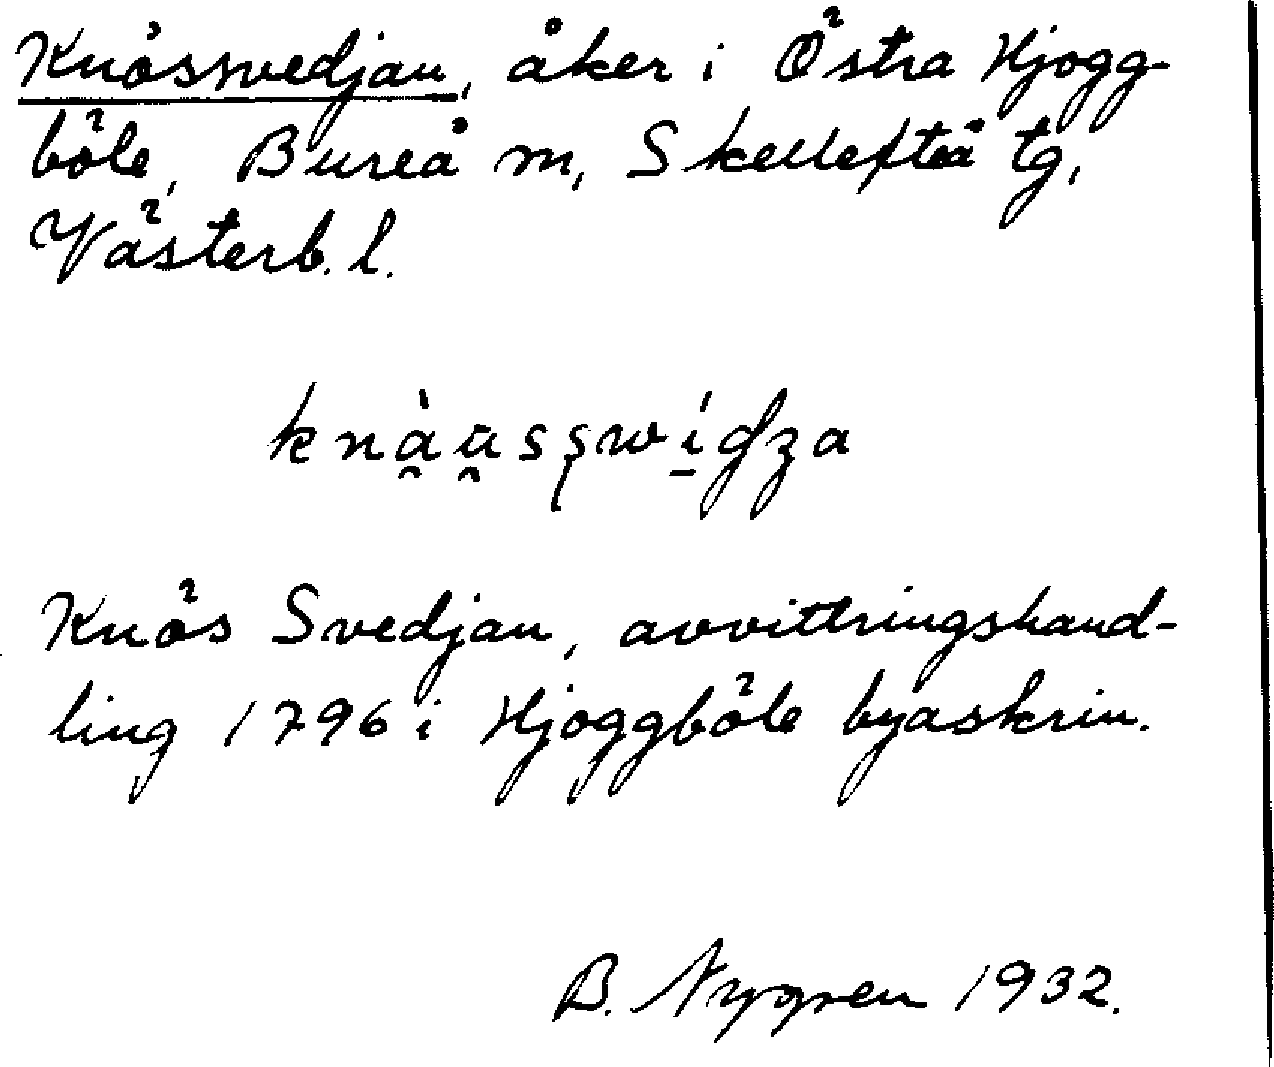 Knössvedjan, åker i Östra Hjogg-
böle, Bureå m, Skellefteå tg,
Västerb. l.
Knös Svedjan, avvittringshand-
ling 1796 i Hjoggböle byaskrin.
B. Nygren 1932.